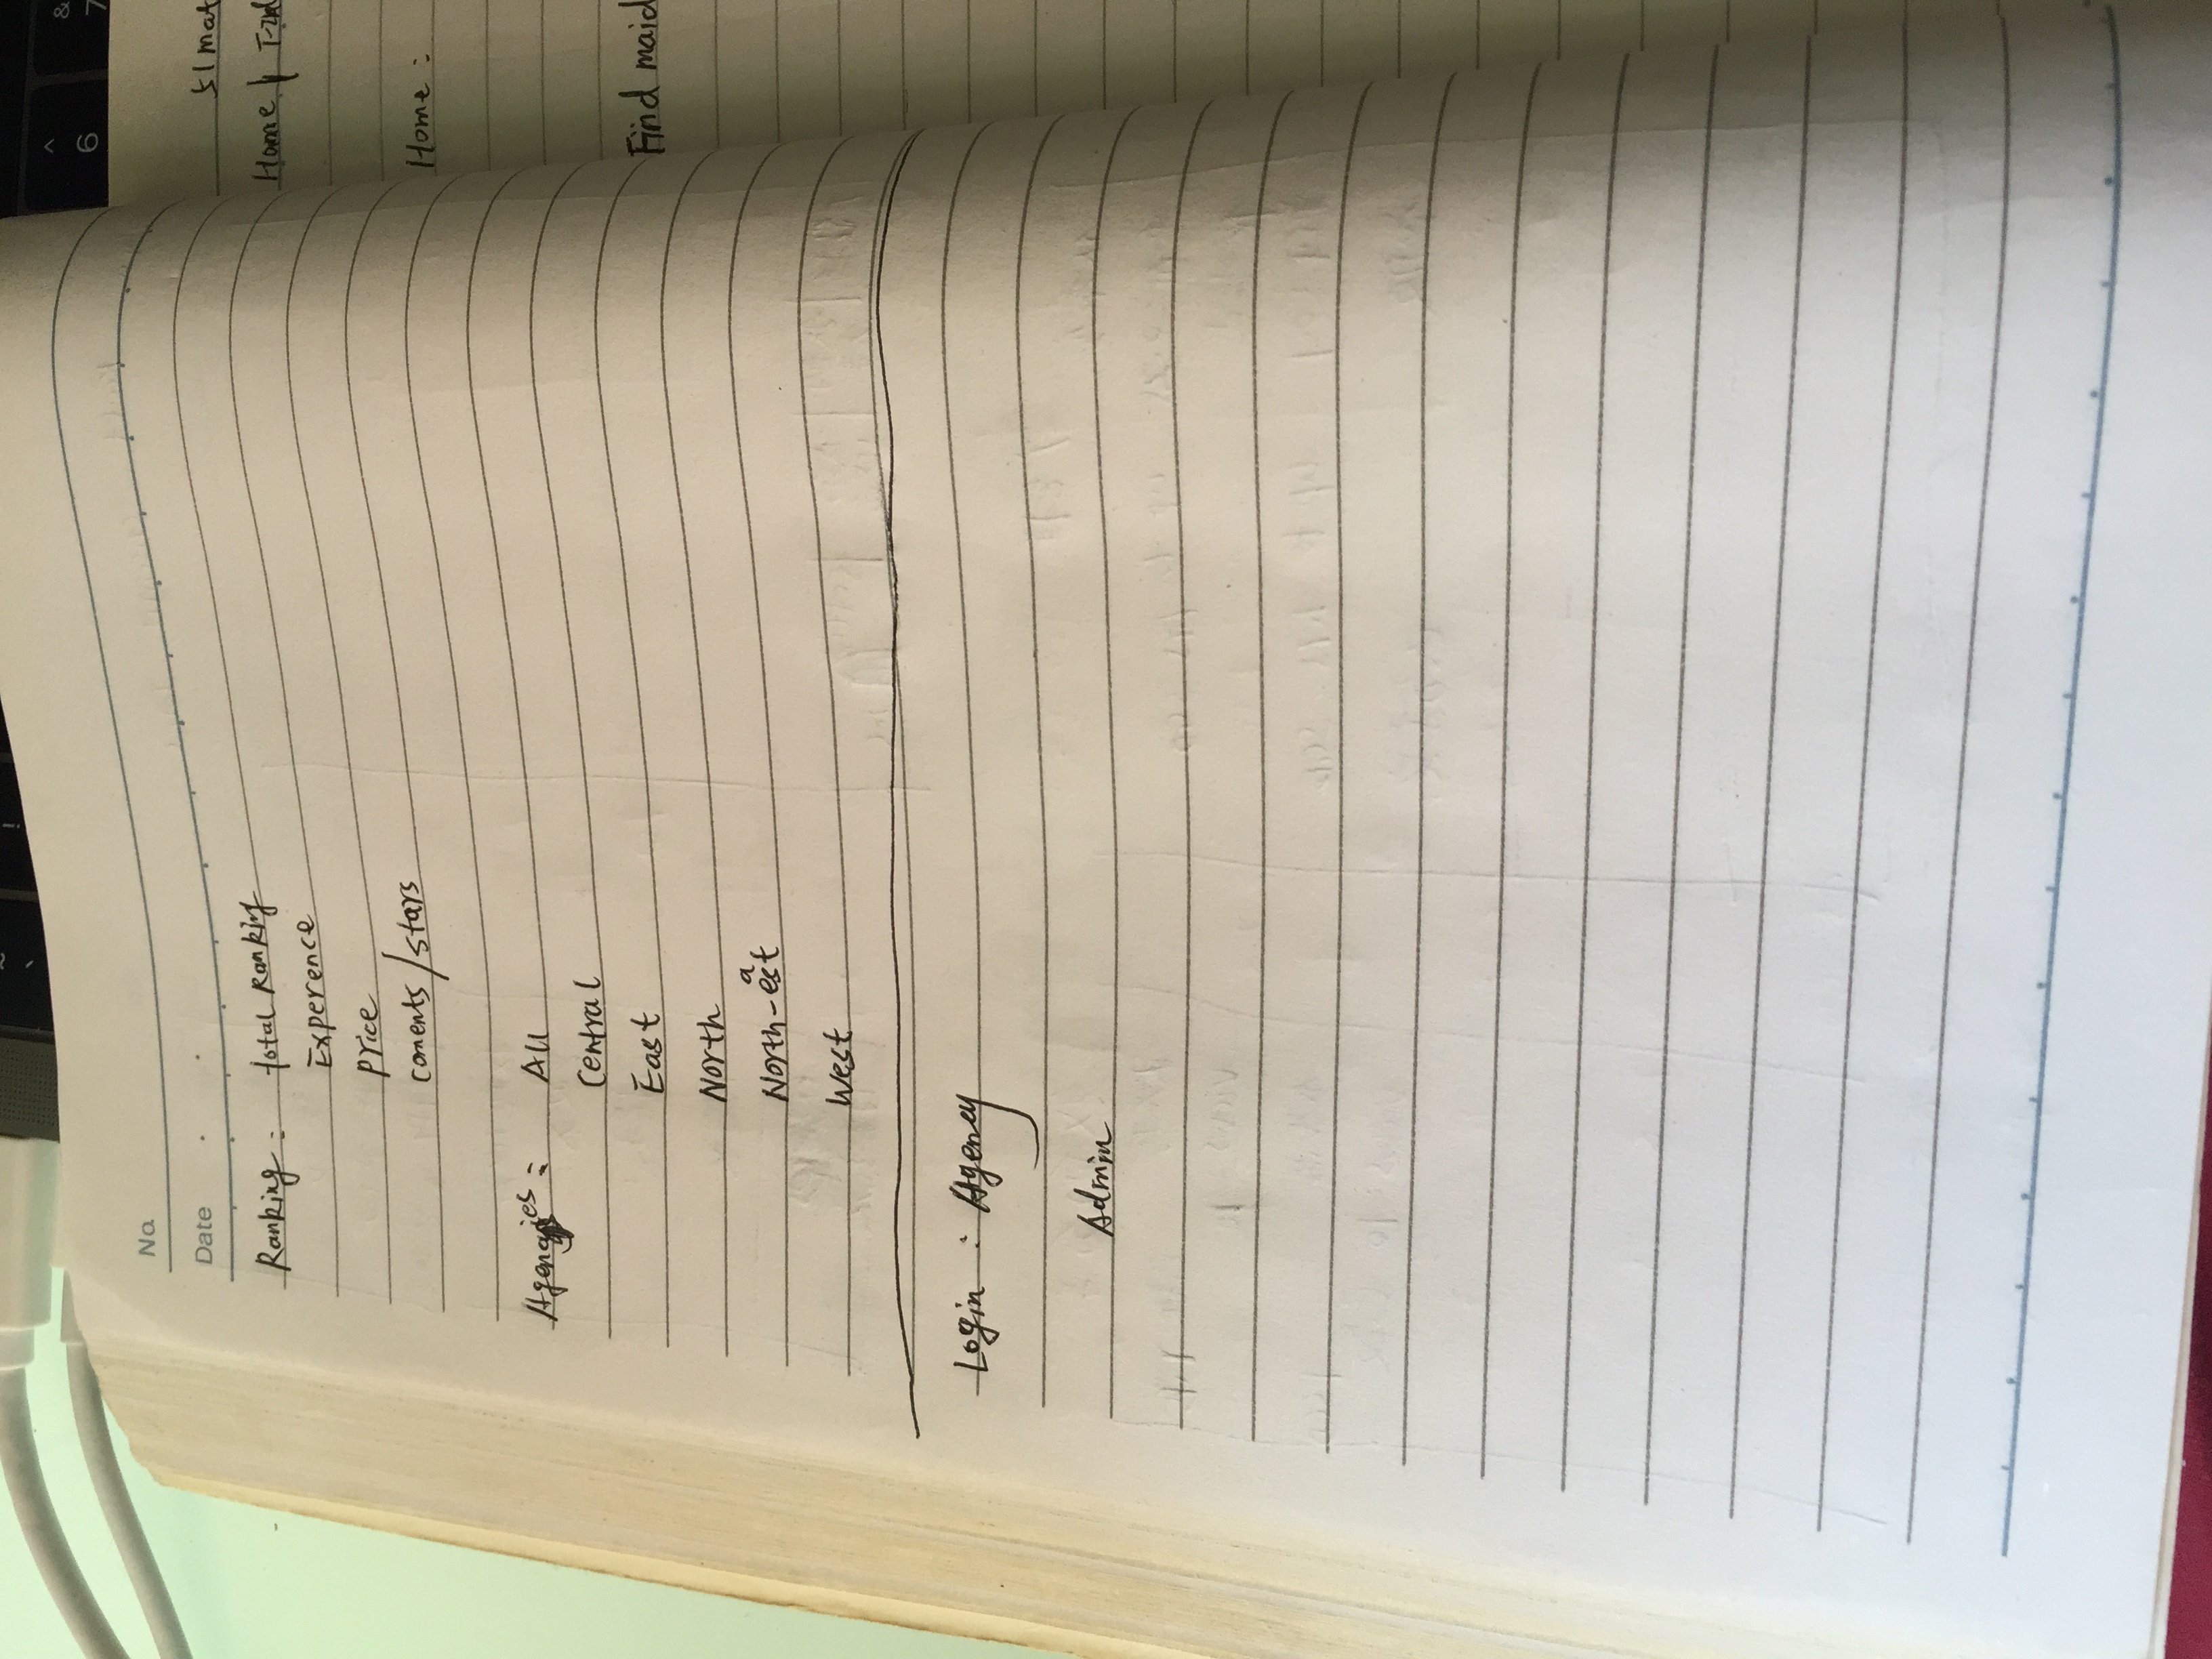 No.
Date
Ranking : total Ranking
Experence
price
coments / stars
Agencies : All
Central
East
North
North-east
West
Login : Agency
Admin
51 mai
Home |
Home :
Find maid
^
6
&
7
~
`
!